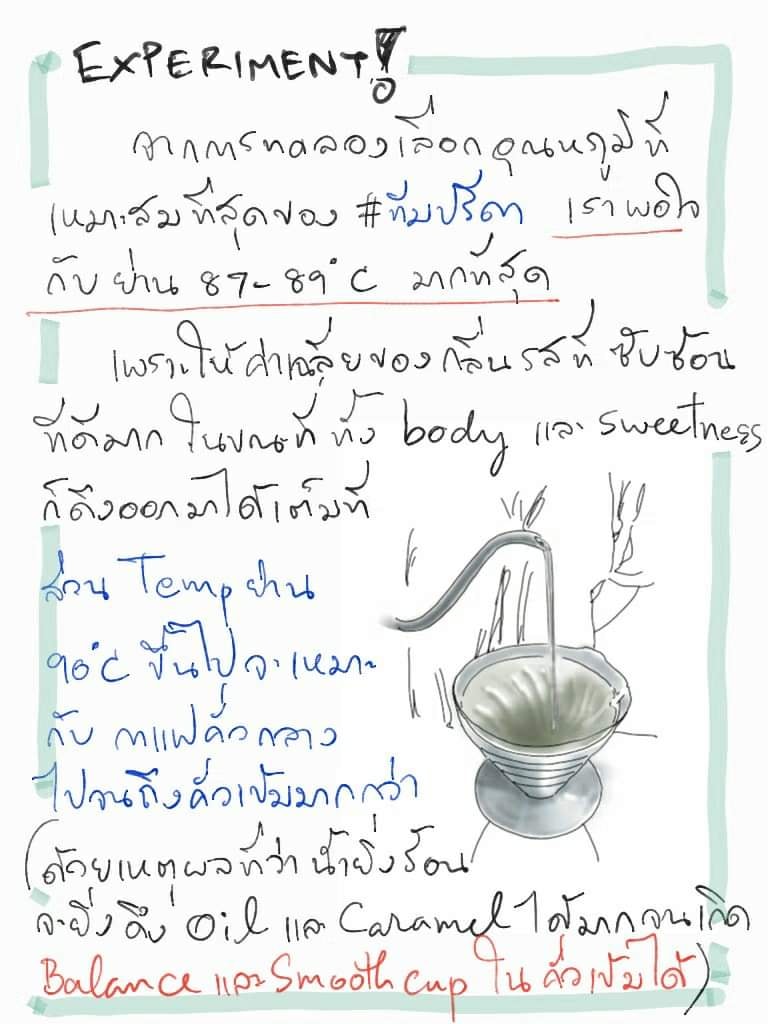 EXPERIMENT!
จากการทดลองเลือกอุณหภูมิที่
เหมาะสมที่สุดของ #ทีมปรีดา เราพอใจ
กับย่าน 87-89°C มากที่สุด
เพราะให้ค่าเฉลี่ยของกลิ่นรสที่ซับซ้อน
ที่ดีมาก ในขณะที่ทั้ง body และ sweetness
ก็ดึงออกมาได้เต็มที่
ส่วน Temp ย่าน
90°C ขึ้นไป จะเหมาะ
กับ กาแฟคั่วกลาง
ไปจนถึงคั่วเข้มมากกว่า
(ด้วยเหตุผลที่ว่า น้ำยิ่งร้อน
จะยิ่งดึง Oil และ Caramel ได้มากจนเกิด
Balance และ Smooth cup ใน คั่วเข้มได้)